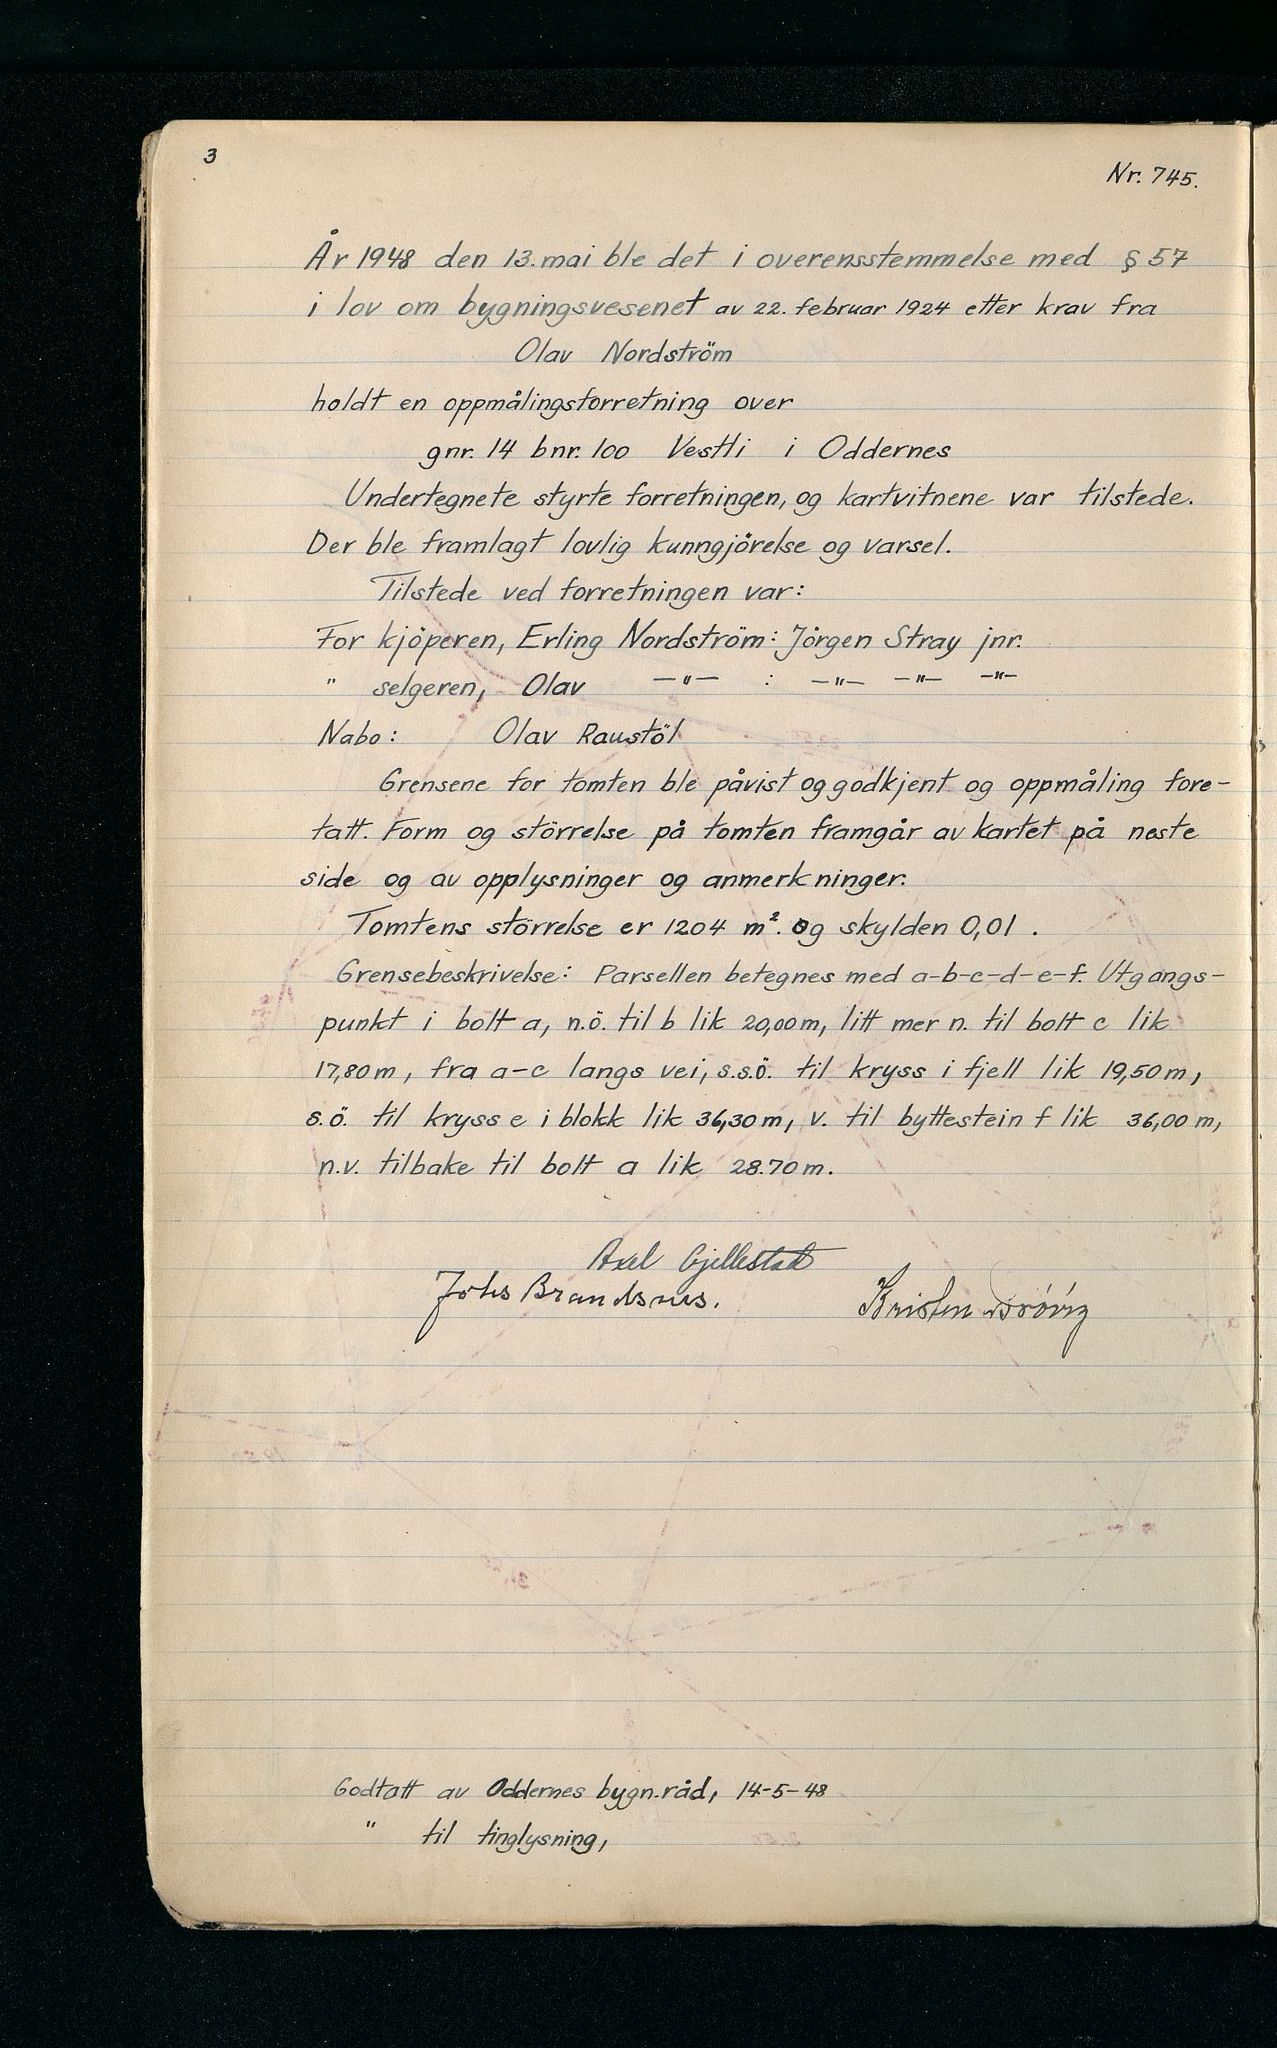 3
Nr. 745.
År 1948 den 13. mai ble det i overensstemmelse med § 57
i lov om bygningsvesenet av 22. februar 1924 etter krav fra
Olav Nordström
holdt en oppmålingsforretning over
gnr. 14 bnr. 100 Vestli i Oddernes
Undertegnete styrte forretningen, og kartvitnene var tilstede.
Der ble framlagt lovlig kunngjörelse og varsel.
Tilstede ved forretningen var:
For kjöperen, Erling Nordström: Jörgen Stray jnr.
" selgeren, Olav —"— : —"— —"— —"—
Nabo: Olav Raustöl
Grensene for tomten ble påvist og godkjent og oppmåling fore-
tatt. Form og störrelse på tomten framgår av kartet på neste
side og av opplysninger og anmerkninger.
Tomtens störrelse er 1204 m². og skylden 0,01.
Grensebeskrivelse: Parsellen betegnes med a-b-c-d-e-f. Utgangs-
punkt i bolt a, n.ö. til b lik 20,00 m, litt mer n. til bolt c lik
17,80 m, fra a-c langs vei, s.s.ö. til kryss i fjell lik 19,50 m,
s.ö. til kryss e i blokk lik 36,30 m, v. til byttestein f lik 36,00 m,
n.v. tilbake til bolt a lik 28.70 m.
Axel Gjellestad
Johs Brandsnes. Kristen
Godtatt av Oddernes bygn.råd, 14-5-48
" til tinglysning,